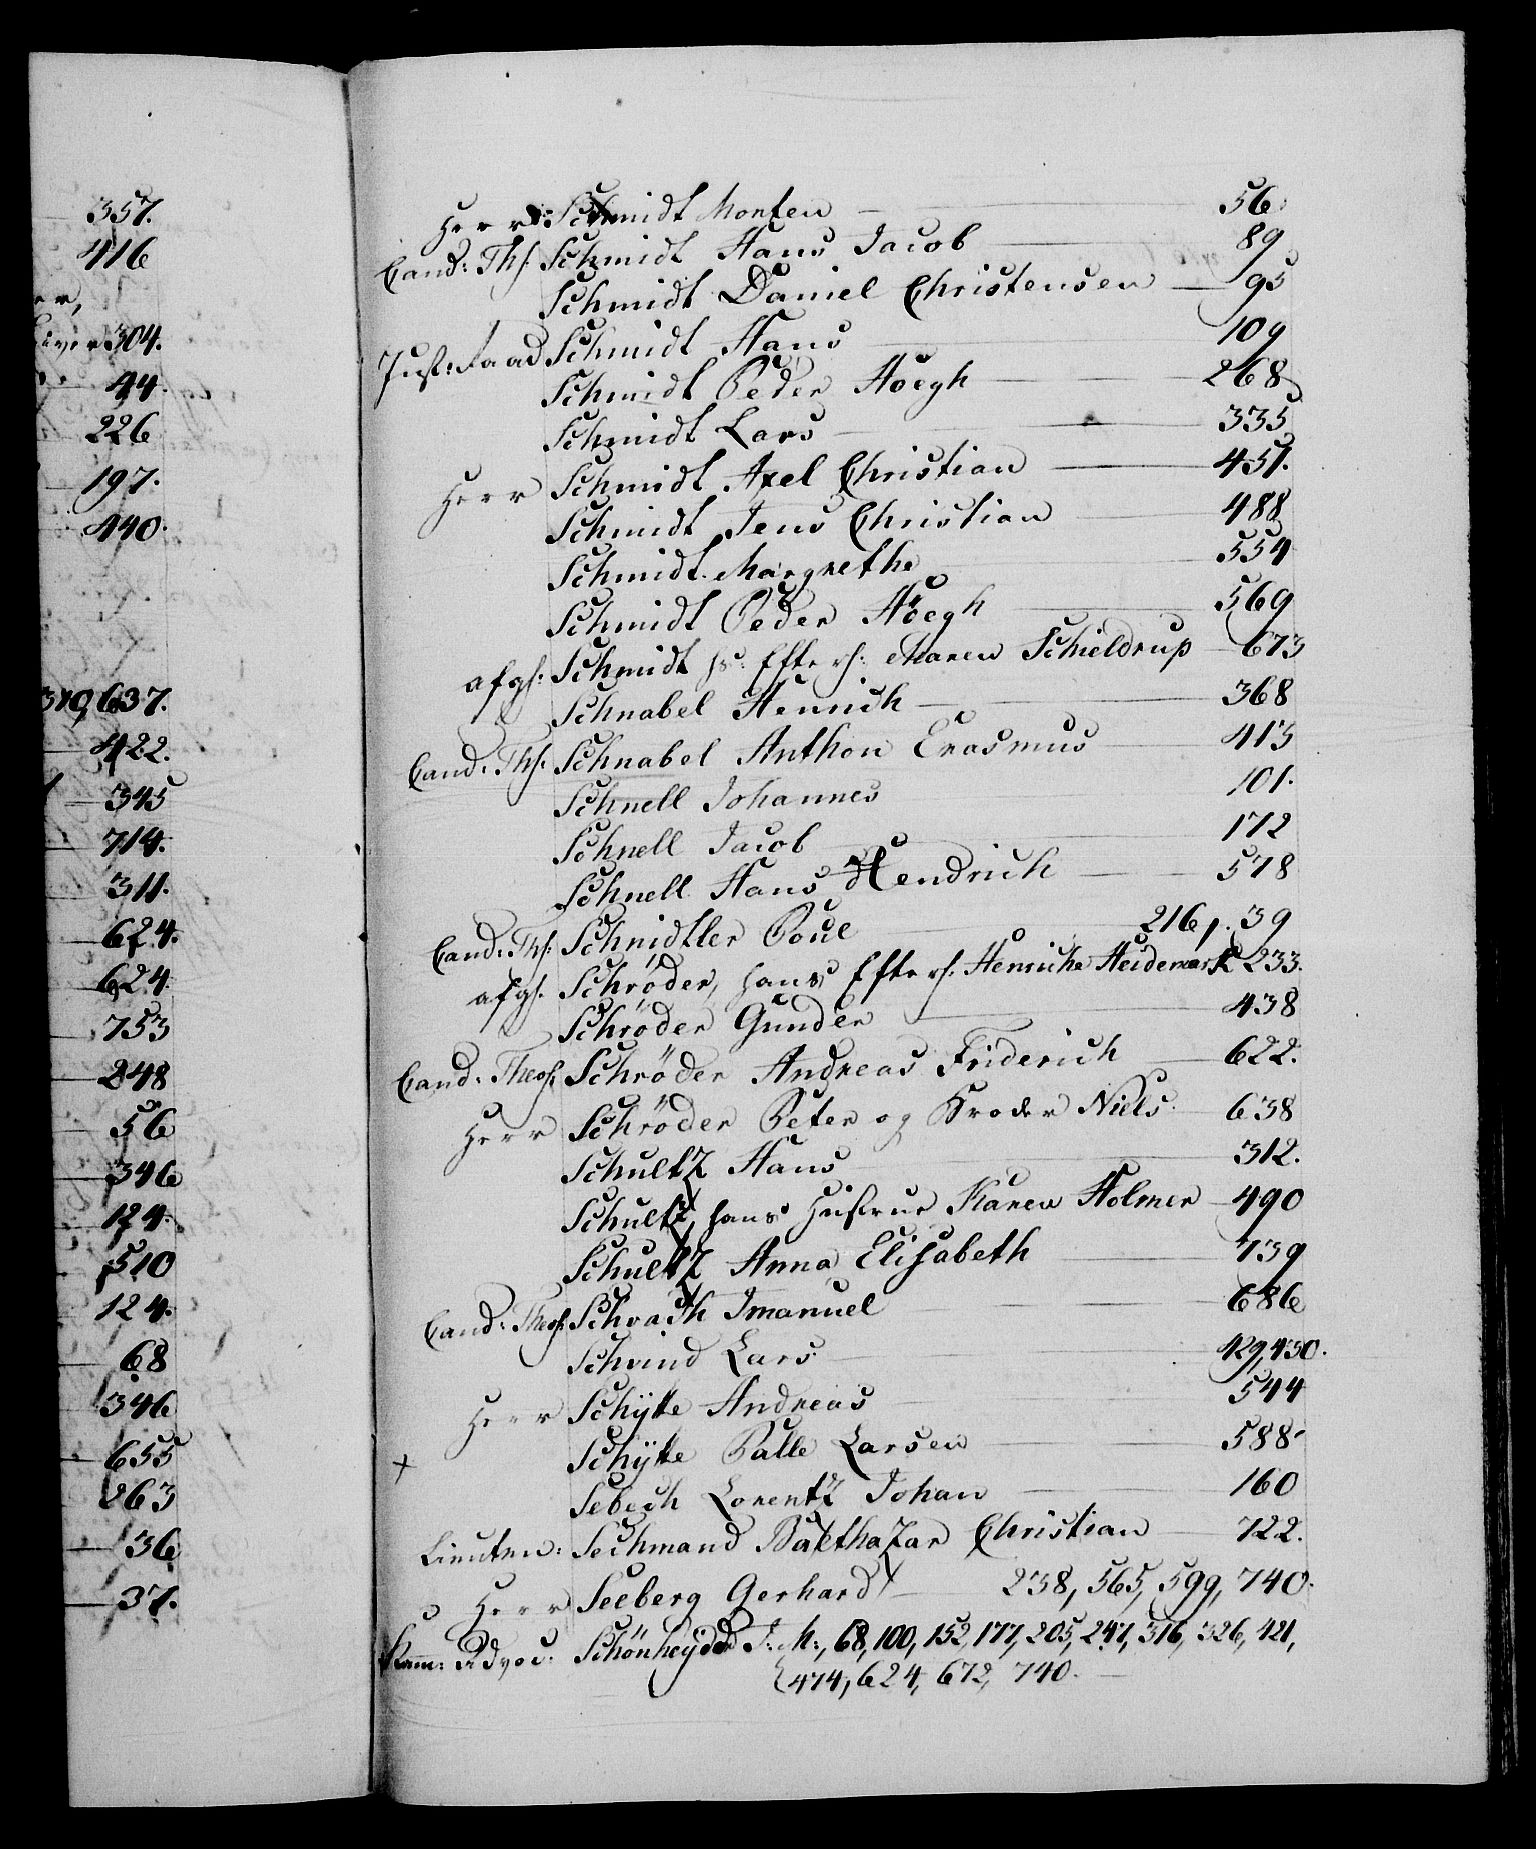 357.
416
er,
304.
44.
226
197.
440.
310, 637.
422.
345
714.
311.
624.
624.
753
248
56
346
124.
510
124.
68
346
655
263
36
37.
Herr Schmidt Morten 56.
Cand: Th. Schmidt Hans Jacob 89
Schmidt Daniel Christensen 95
Just: Raad Schmidt Hans 109
Schmidt Peder Höegh 268
Schmidt Lars 335
Herr Schmidt Axel Christian 451.
Schmidt Jens Christian 488
Schmidt Margrethe 554
Schmidt Peder Höegh 569
afg: Schmidt hs: Efterl: Maren Schieldrup 673
Schnabel Henrich 368
Cand: Th. Schnabel Anthon Erasmus 413
Schnell Johannes 101.
Schnell Jacob 172
Schnell Hans Hendrich 578
Cand: Th. Schnidtler Poul 216, 39
afg. Schröder, hans Efterl. Henriche Heidemark 233.
Schröder Gunder 438
Cand: Theol. Schröder Andreas Friderich 622.
Herr Schröder Peter og Krøder Niels 638
Schultz Hans 312.
Schultz, hans Hustrue Karen Holmer 490
Schultz Anna Elisabeth 739
Cand: Theol. Schvach Imanuel 686
Schvind Lars 429, 430.
Herr Schÿtte Andreas 544
+ Schÿtte Palle Larsen 588.
Sebech Lorentz Johan 160
Lieuten: Sechmand Balthazar Christian 722.
Herr Seeberg Gerhard 238, 565, 599, 740.
Kam: Advoc: Schönheÿder J: M:, 68, 100, 152, 177, 205, 247, 316, 326, 421,
474, 624, 672, 740.